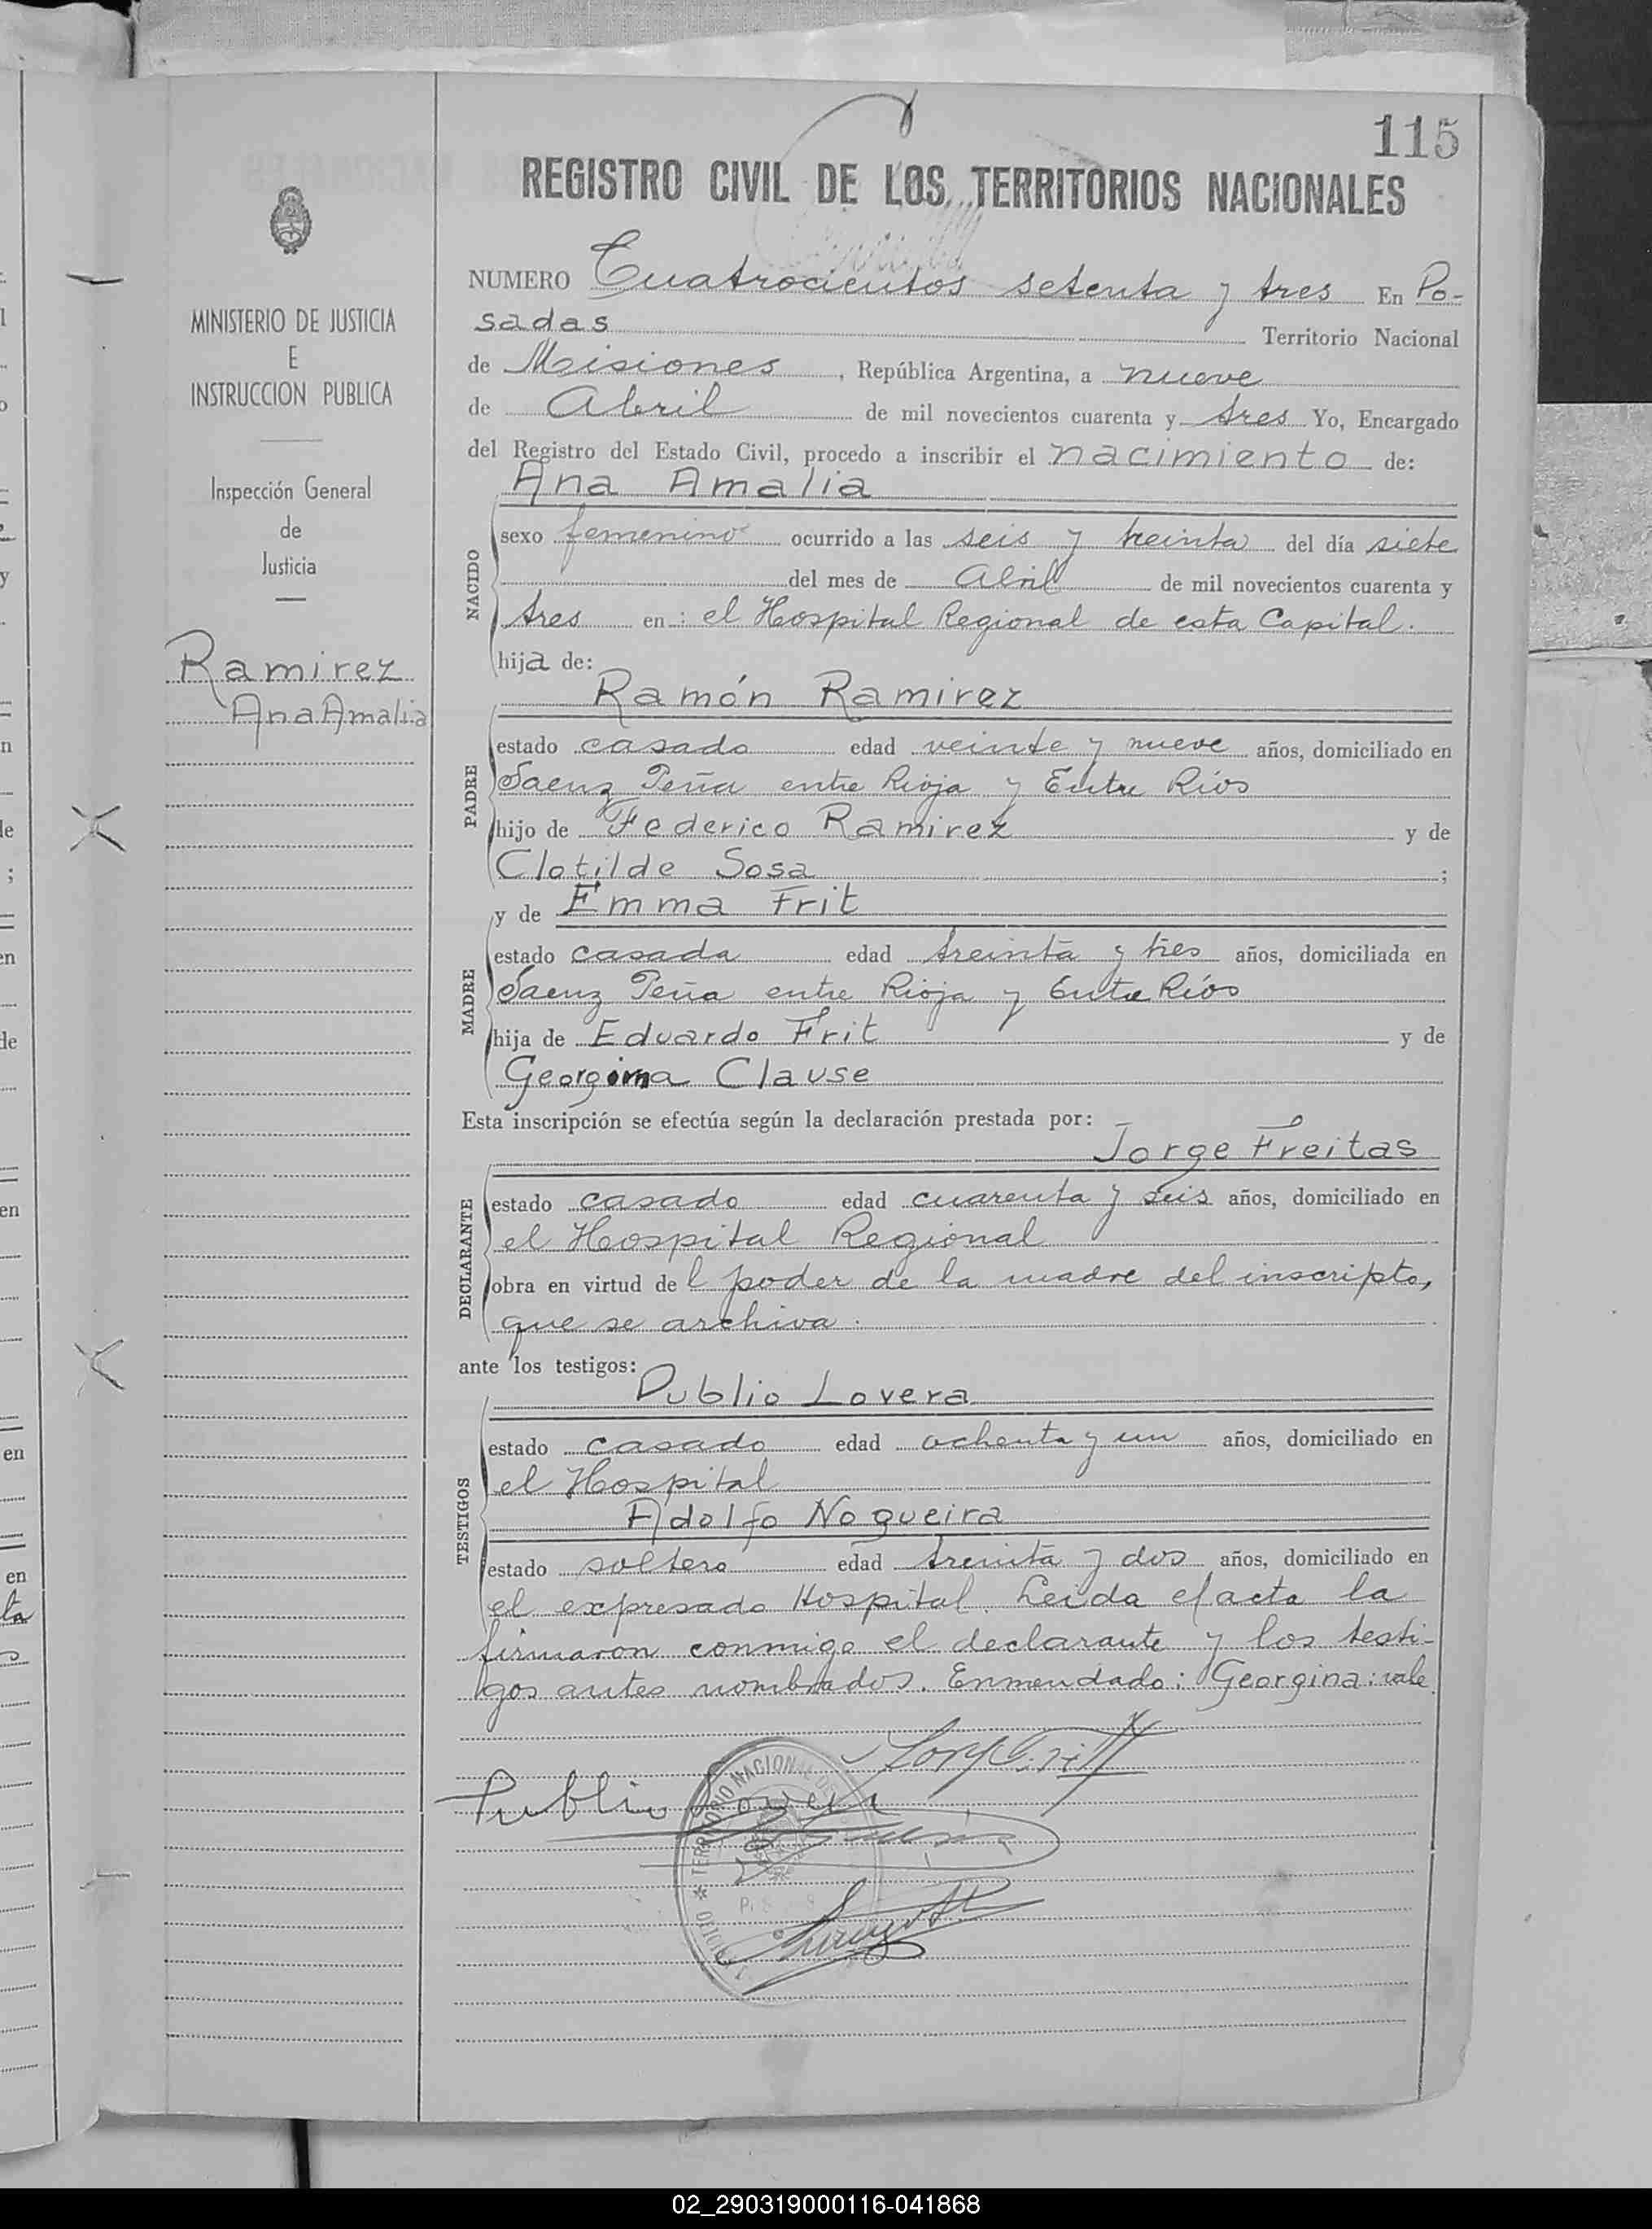 115
REGISTRO CIVIL DE LOS TERRITORIOS NACIONALES
MINISTERIO DE JUSTICIA
E
INSTRUCCION PUBLICA
Inspección General
de
Justicia
Ramirez
Ana Amalia
NUMERO Cuatrocientos setenta y tres En Po-
sadas Territorio Nacional
de Misiones, República Argentina, a nueve
de Abril de mil novecientos cuarenta y tres Yo, Encargado
del Registro del Estado Civil, procedo a inscribir el nacimiento de:
Ana Amalia
NACIDO
sexo femenino ocurrido a las seis y treinta del día siete
del mes de Abril de mil novecientos cuarenta y
tres en: el Hospital Regional de esta Capital.
hija de:
Ramón Ramirez
PADRE
estado casado edad veinte y nueve años, domiciliado en
Saenz Peña entre Rioja y Entre Ríos
hijo de Federico Ramirez y de
Clotilde Sosa ;
y de Emma Frit
MADRE
estado casada edad treinta y tres años, domiciliada en
Saenz Peña entre Rioja y Entre Ríos
hija de Eduardo Frit y de
Georgina Clause
Esta inscripción se efectúa según la declaración prestada por:
Jorge Freitas
DECLARANTE
estado casado edad cuarenta y seis años, domiciliado en
el Hospital Regional
obra en virtud del poder de la madre del inscripto,
que se archiva.
ante los testigos:
Publio Lovera
TESTIGOS
estado casado edad ochenta y un años, domiciliado en
el Hospital
Adolfo Nogueira
estado soltero edad treinta y dos años, domiciliado en
el expresado Hospital. Leida el acta la
firmaron conmigo el declarante y los testi-
gos antes nombrados. Enmendado: Georgina: vale
Publio Lovera
TERRITORIO NACIONAL
02_290319000116-041868